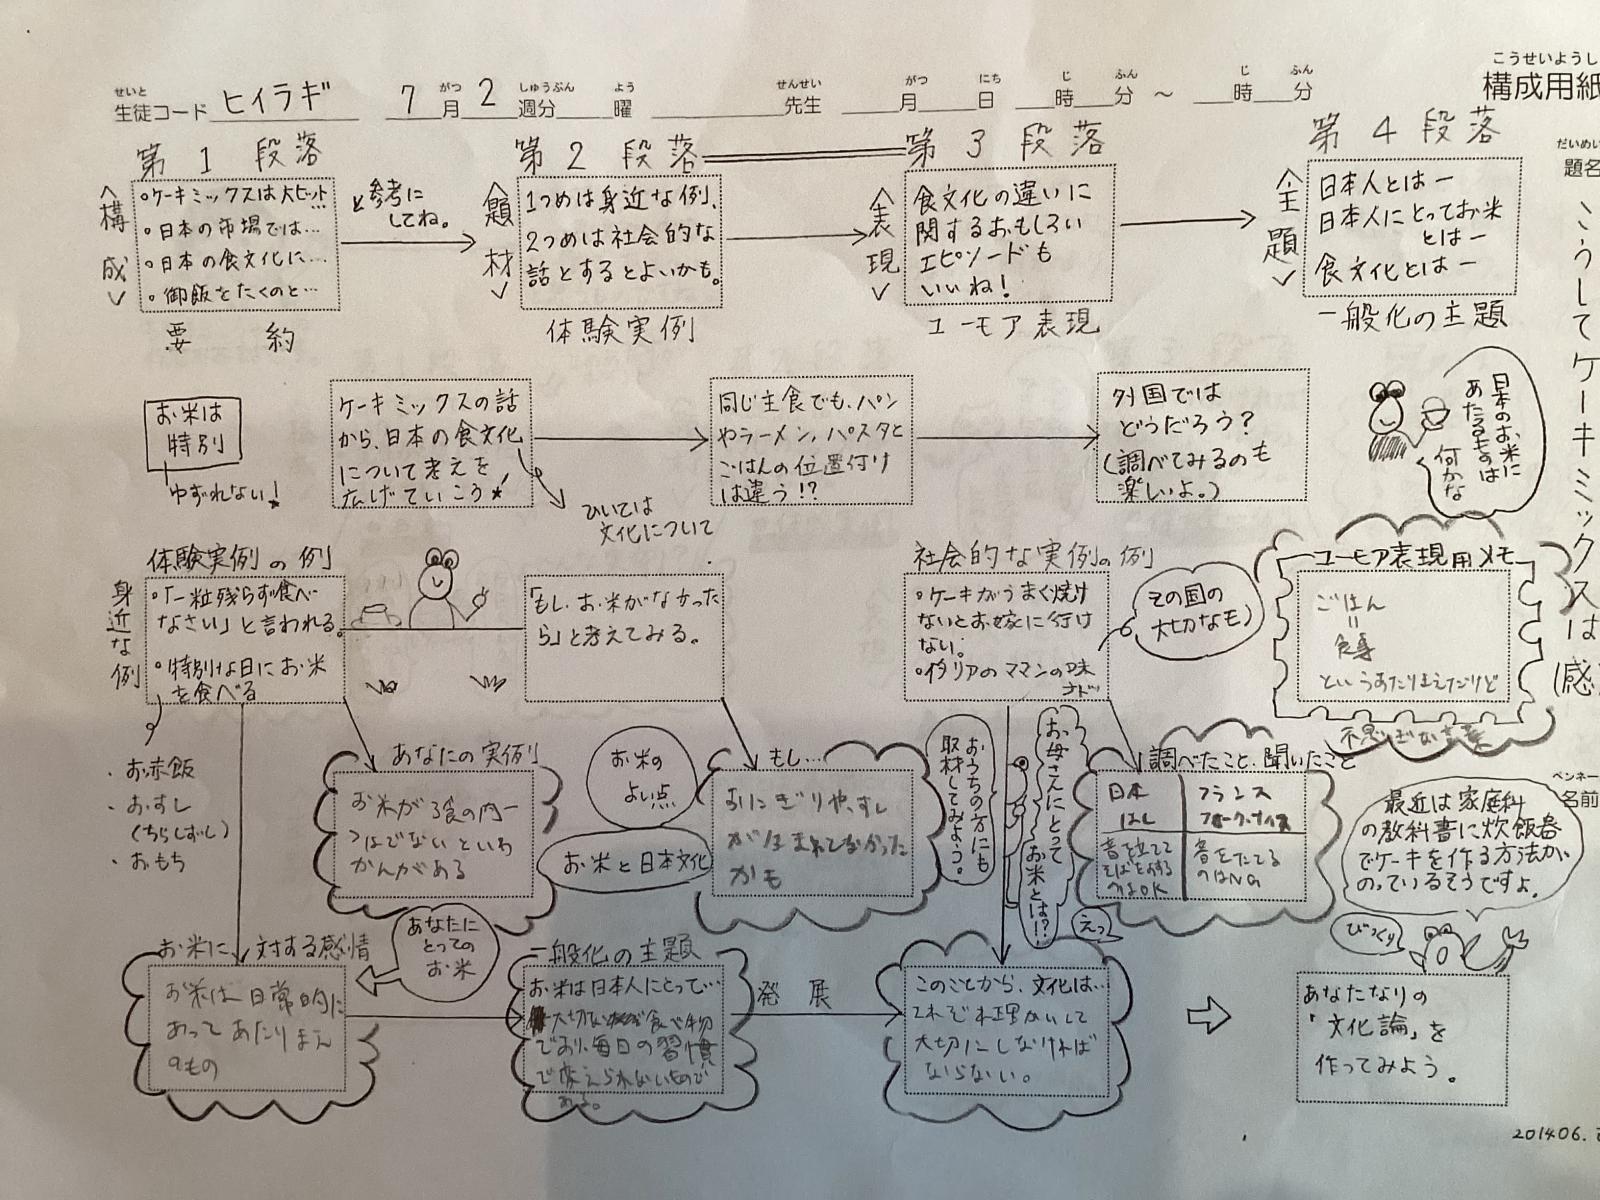 こうせいようし
構成用紙
せいと がつ しゅうぶん よう せんせい がつ にち じ ふん じ ふん
生徒コード ヒイラギ 7月 2週分 曜 先生 月 日 時 分 ～ 時 分
だいめい
題名
こうしてケーキミックスは(感)
ペンネー
名前
第1段落
〈構成〉
・ケーキミックスは大ヒット…
・日本の市場では…
・日本の食文化に…
・御飯をたくのと…
要約
と参考に
してね。
第2段落
〈題材〉
1つめは身近な例、
2つめは社会的な
話とするとよいかも。
体験実例
第3段落
〈表現〉
食文化の違いに
関するおもしろい
エピソードも
いいね!
ユーモア表現
第4段落
〈主題〉
日本人とはー
日本人にとってお米
とはー
食文化とはー
一般化の主題
お米は
特別
ゆずれない!
ケーキミックスの話
から、日本の食文化
について考えを
広げていこう
ひいては
文化について
同じ主食でも、パン
やラーメン、パスタと
ごはんの位置付け
は違う!?
外国では
どうだろう?
(調べてみるのも
楽しいよ。)
日本のお米に
あたるものは
何かな
体験実例の例
身近な例
・「一粒残らず食べ
なさい」と言われる。
・特別な日にお米
を食べる
・お赤飯
・おすし
(ちらしずし)
・おもち
「もし、お米がなかった
ら」と考えてみる。
社会的な実例の例
・ケーキがうまく焼け
ないとお嫁に行け
ない。
・イタリアのママンの味
など…
その国の
大切なもの
ユーモア表現用メモ
ごはん
=
食事
というあたりまえだけど
不思ぎな言葉
あなたの実例
お米が3食の内一
つはでないといわ
かんがある
お米の
よい点
お米と日本文化
もし…
おにぎりや、すし
が生まれてなかった
かも
おうちの方にも
取材してみよう。
お母さんにとって
お米とは!?
えっ
調べたこと、聞いたこと
日本
はし
フランス
フォーク、ナイフ
音を立てて
そばを食べる
のはOK
音をたてる
のはNG
最近は家庭科
の教科書に炊飯器
でケーキを作る方法が
のっているそうですよ。
びっくり
お米に対する感情
お米は日常的に
あってあたりまえ
のもの
あなたに
とっての
お米
一般化の主題
お米は日本人にとって…
大切な食べ物
であり、毎日の習慣
で変えられないもので
ある。
発展
このことから、文化は…
それぞれ理かいして
大切にしなければ
ならない。
あなたなりの
「文化論」を
作ってみよう。
201406.